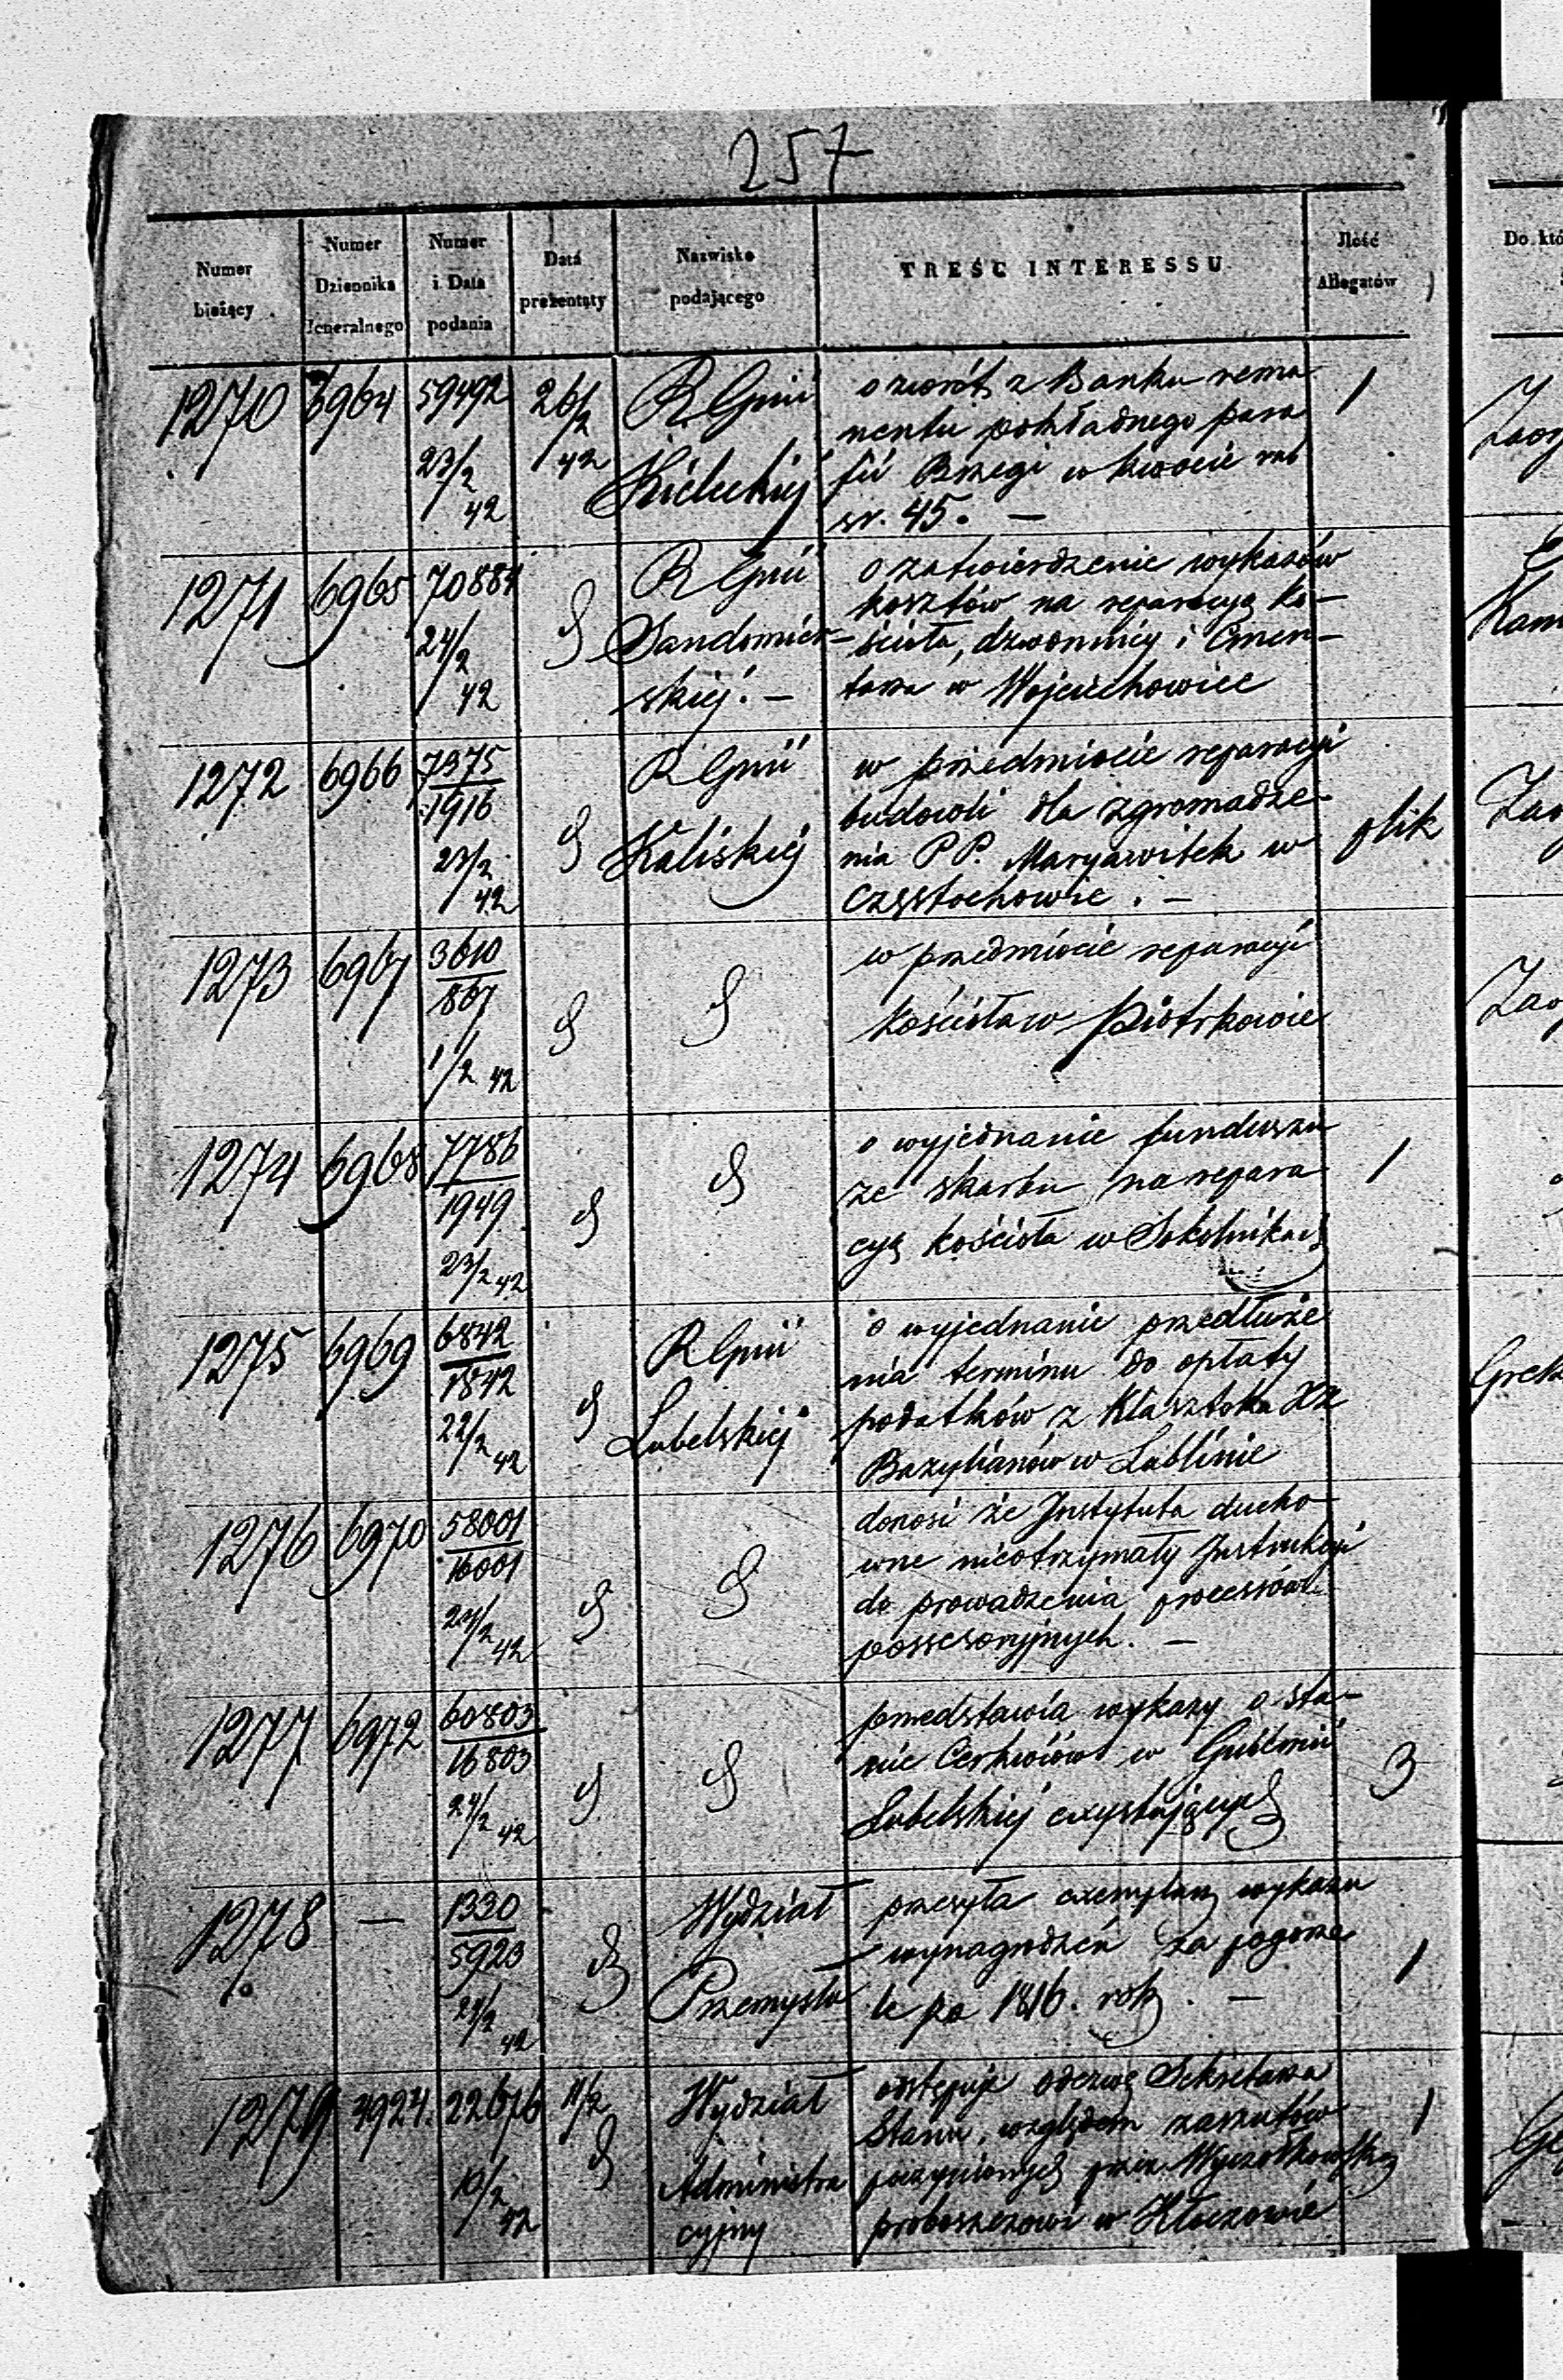 257
Numer bieżący
Numer Dziennika Jeneralnego
Numer i Data podania
Data prezentaty
Nazwisko podającego
TREŚĆ INTERESSU
Ilość Allegatów
Do któ
1270 6964 59492 23/2 42 26/2 42
R Gnii
Kieleckiej
o zwrót z Banku rema
nentu pokładnego para
fii Brzegi w kwocie rub
sr. 45. —
1
1271 6965 70884 24/2 42
R Gnii
Sandomier-
skiej. —
o zatwierdzenie wykazów
kosztów na reparacyą ko-
ścioła, dzwonnicy i Cmen-
tarza w Wojciechowice
Kam
1272 6966 7375 1916 23/2 42
R Gnii
Kaliskiej
w przedmiocie reparacyi
budowli dla zgromadze-
nia P P. Maryawitek w
Częstochowie. —
plik
1273 6967 3610 867 1/2 42
w przedmiocie reparacyi
kościoła w Piotrkowie
1274 6968 7786 1949 23/2 42
o wyjednanie funduszu
ze skarbu na repara
cyą kościoła w Sokolnikach
1
1275 6969 6842 1842 22/2 42
R Gnii
Lubelskiej
o wyjednanie przedłuże
nia terminu do opłaty
podatków z Klasztoru XX
Bazylianów w Lublinie
Grek
1276 6970 58001 16001 24/2 42
donosi że Instytuta ducho-
wne nieotrzymały Instrukcyi
do prowadzenia processów
possesoryjnych. —
1277 6972 60803 16803 24/2 42
przedstawia wykazy o sta-
nie Cerkwiów w Gubernii
Lubelskiej exystujących
3
1278 — 1330 5923 21/2 42
Wydział
Przemysłu
przesyła exemplarz wykazu
wynagrodzeń za pogorze
le po 1816. rok. —
1
1279 4924. 22676 10/2 42 11/2
Wydział
Administra
cyjny
odstępuje odezwę Sekretarza
Stanu, względem zarzutów
poczynionych przez Wyczółkowską
proboszczowi w Kłoczowie
1